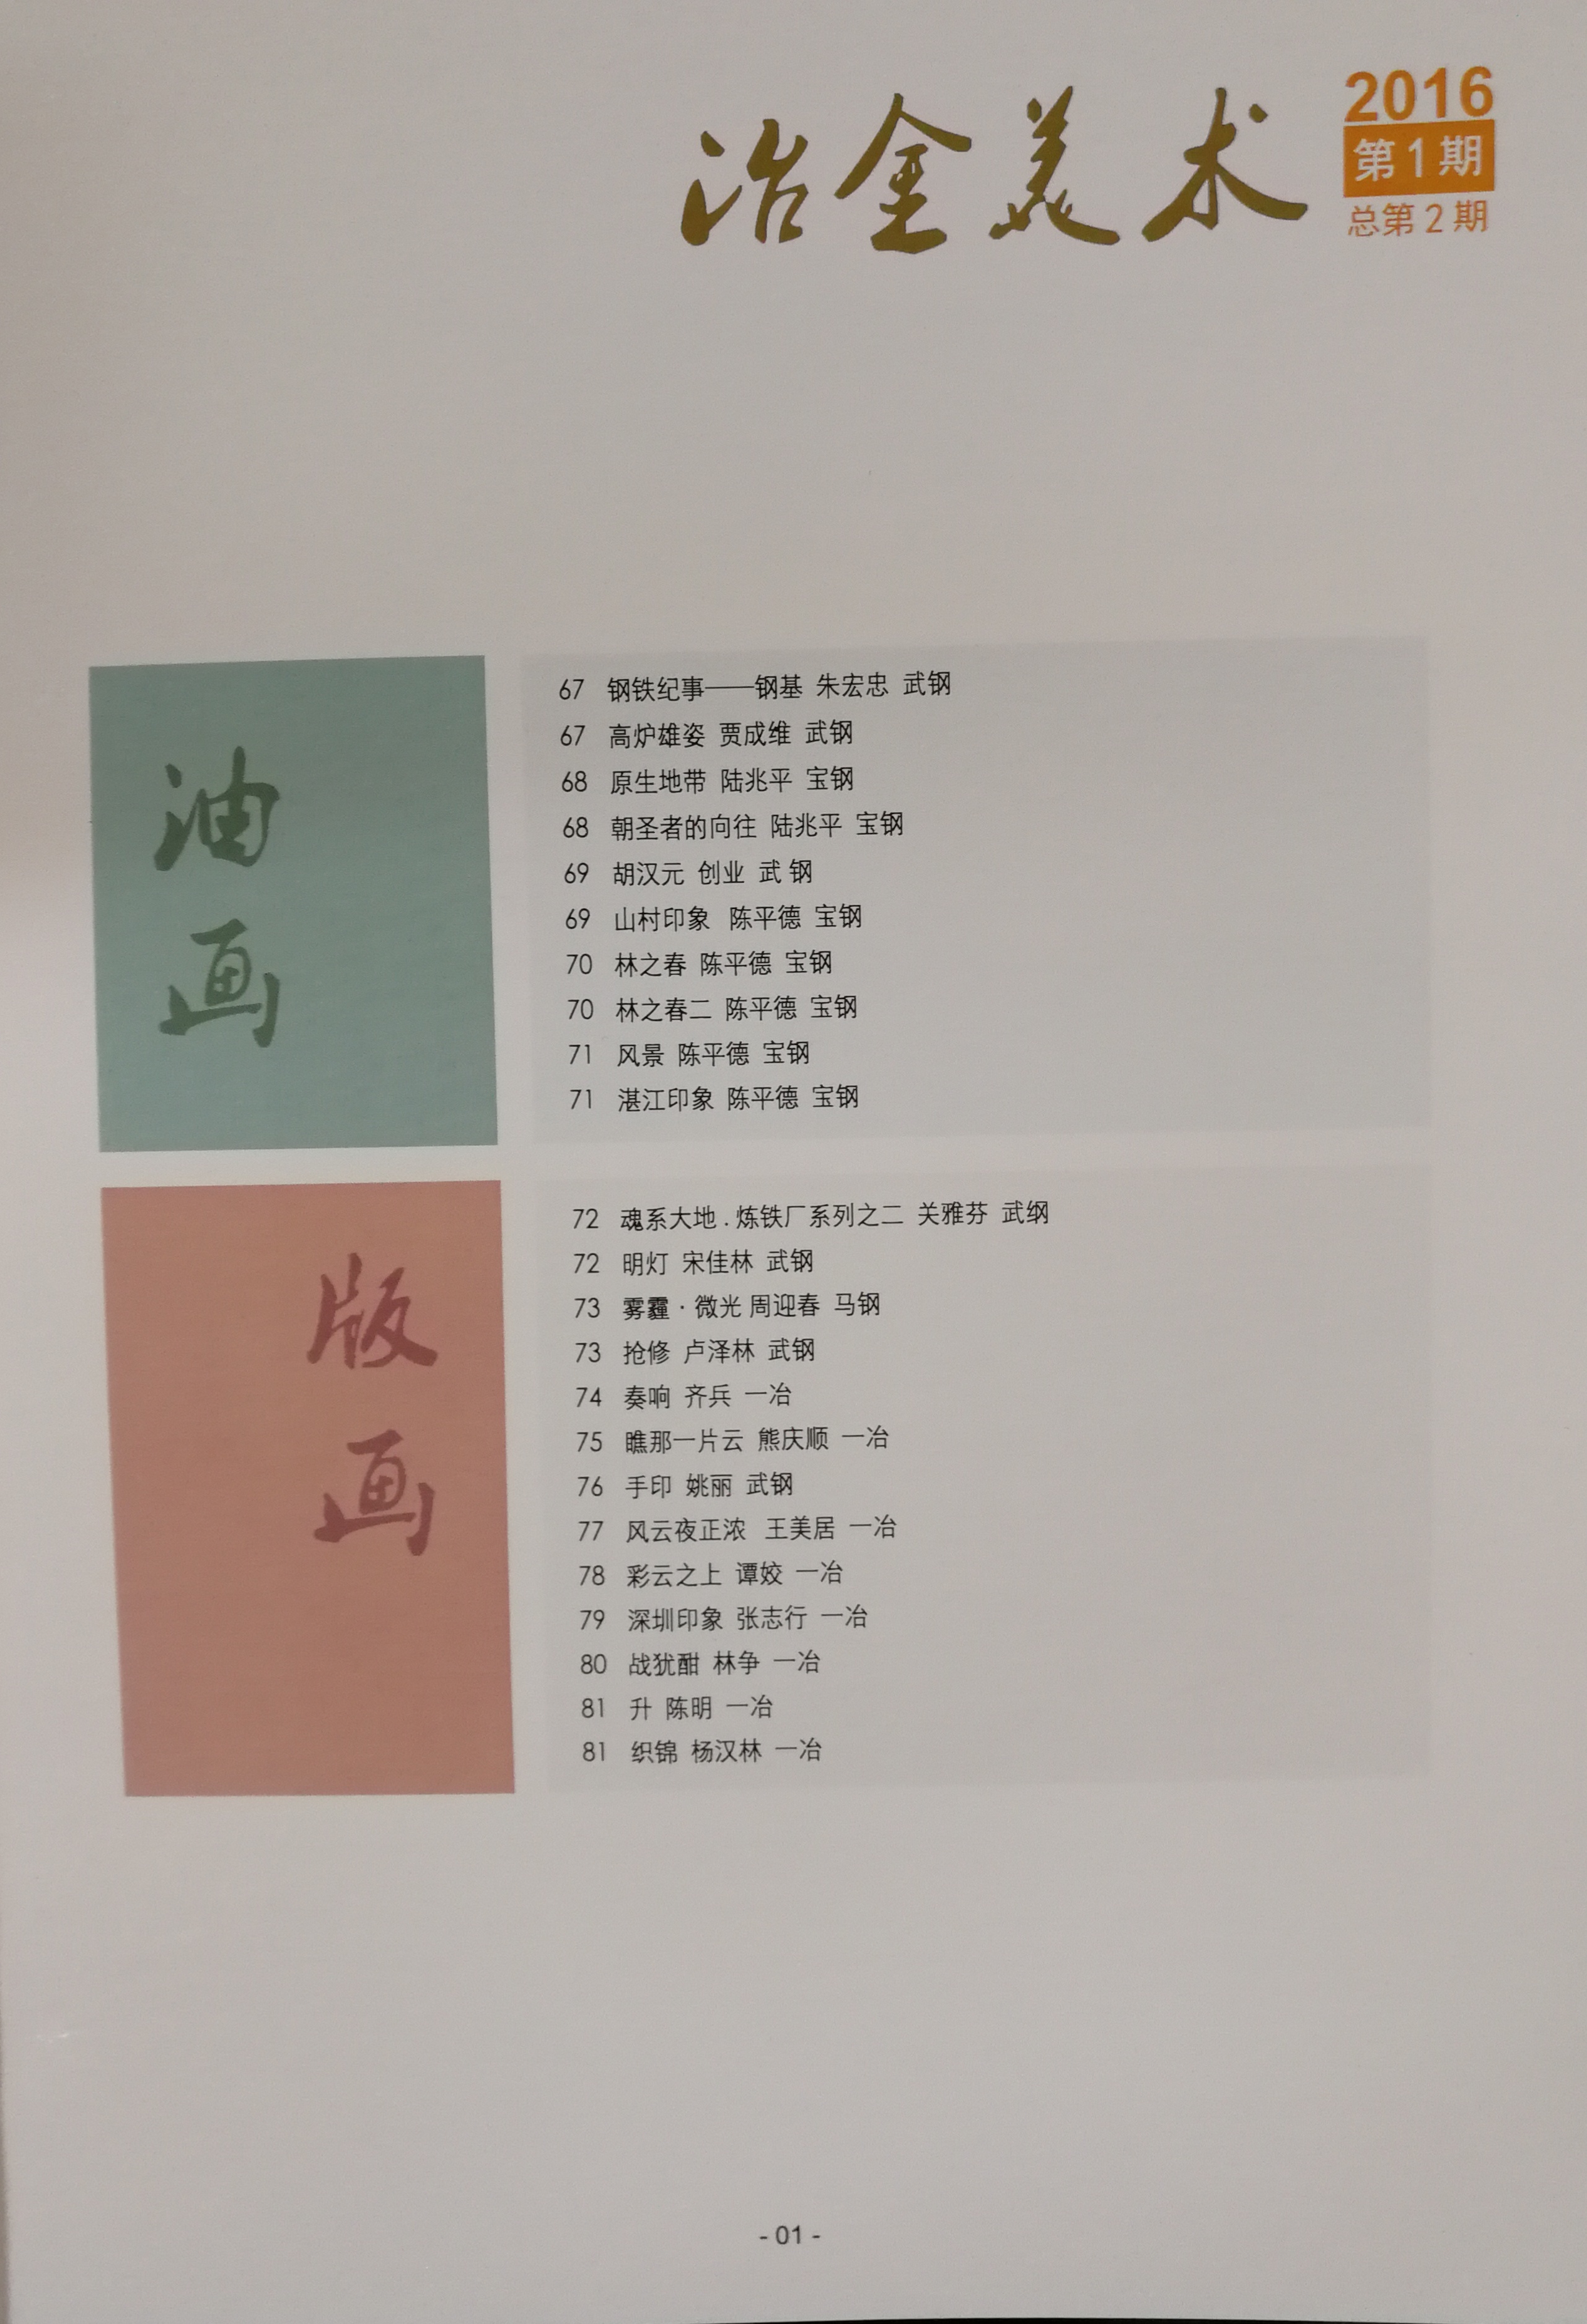 冶金美术
2016
第1期
总第2期
油画
67 钢铁纪事——钢基 朱宏忠 武钢
67 高炉雄姿 贾成维 武钢
68 原生地带 陆兆平 宝钢
68 朝圣者的向往 陆兆平 宝钢
69 胡汉元 创业 武 钢
69 山村印象 陈平德 宝钢
70 林之春 陈平德 宝钢
70 林之春二 陈平德 宝钢
71 风景 陈平德 宝钢
71 湛江印象 陈平德 宝钢
版画
72 魂系大地.炼铁厂系列之二 关雅芬 武纲
72 明灯 宋佳林 武钢
73 雾霾·微光 周迎春 马钢
73 抢修 卢泽林 武钢
74 奏响 齐兵 一冶
75 瞧那一片云 熊庆顺 一冶
76 手印 姚丽 武钢
77 风云夜正浓 王美居 一冶
78 彩云之上 谭姣 一冶
79 深圳印象 张志行 一冶
80 战犹酣 林争 一冶
81 升 陈明 一冶
81 织锦 杨汉林 一冶
- 01 -